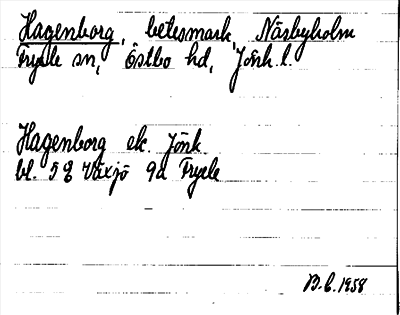 Hagenborg, betesmark, Näsbyholm
Fryele sn, Östbo hd, Jönk. l.
Hagenborg ek. Jönk.
bl. 5 E Växjö 9d Fryele
B.L. 1958